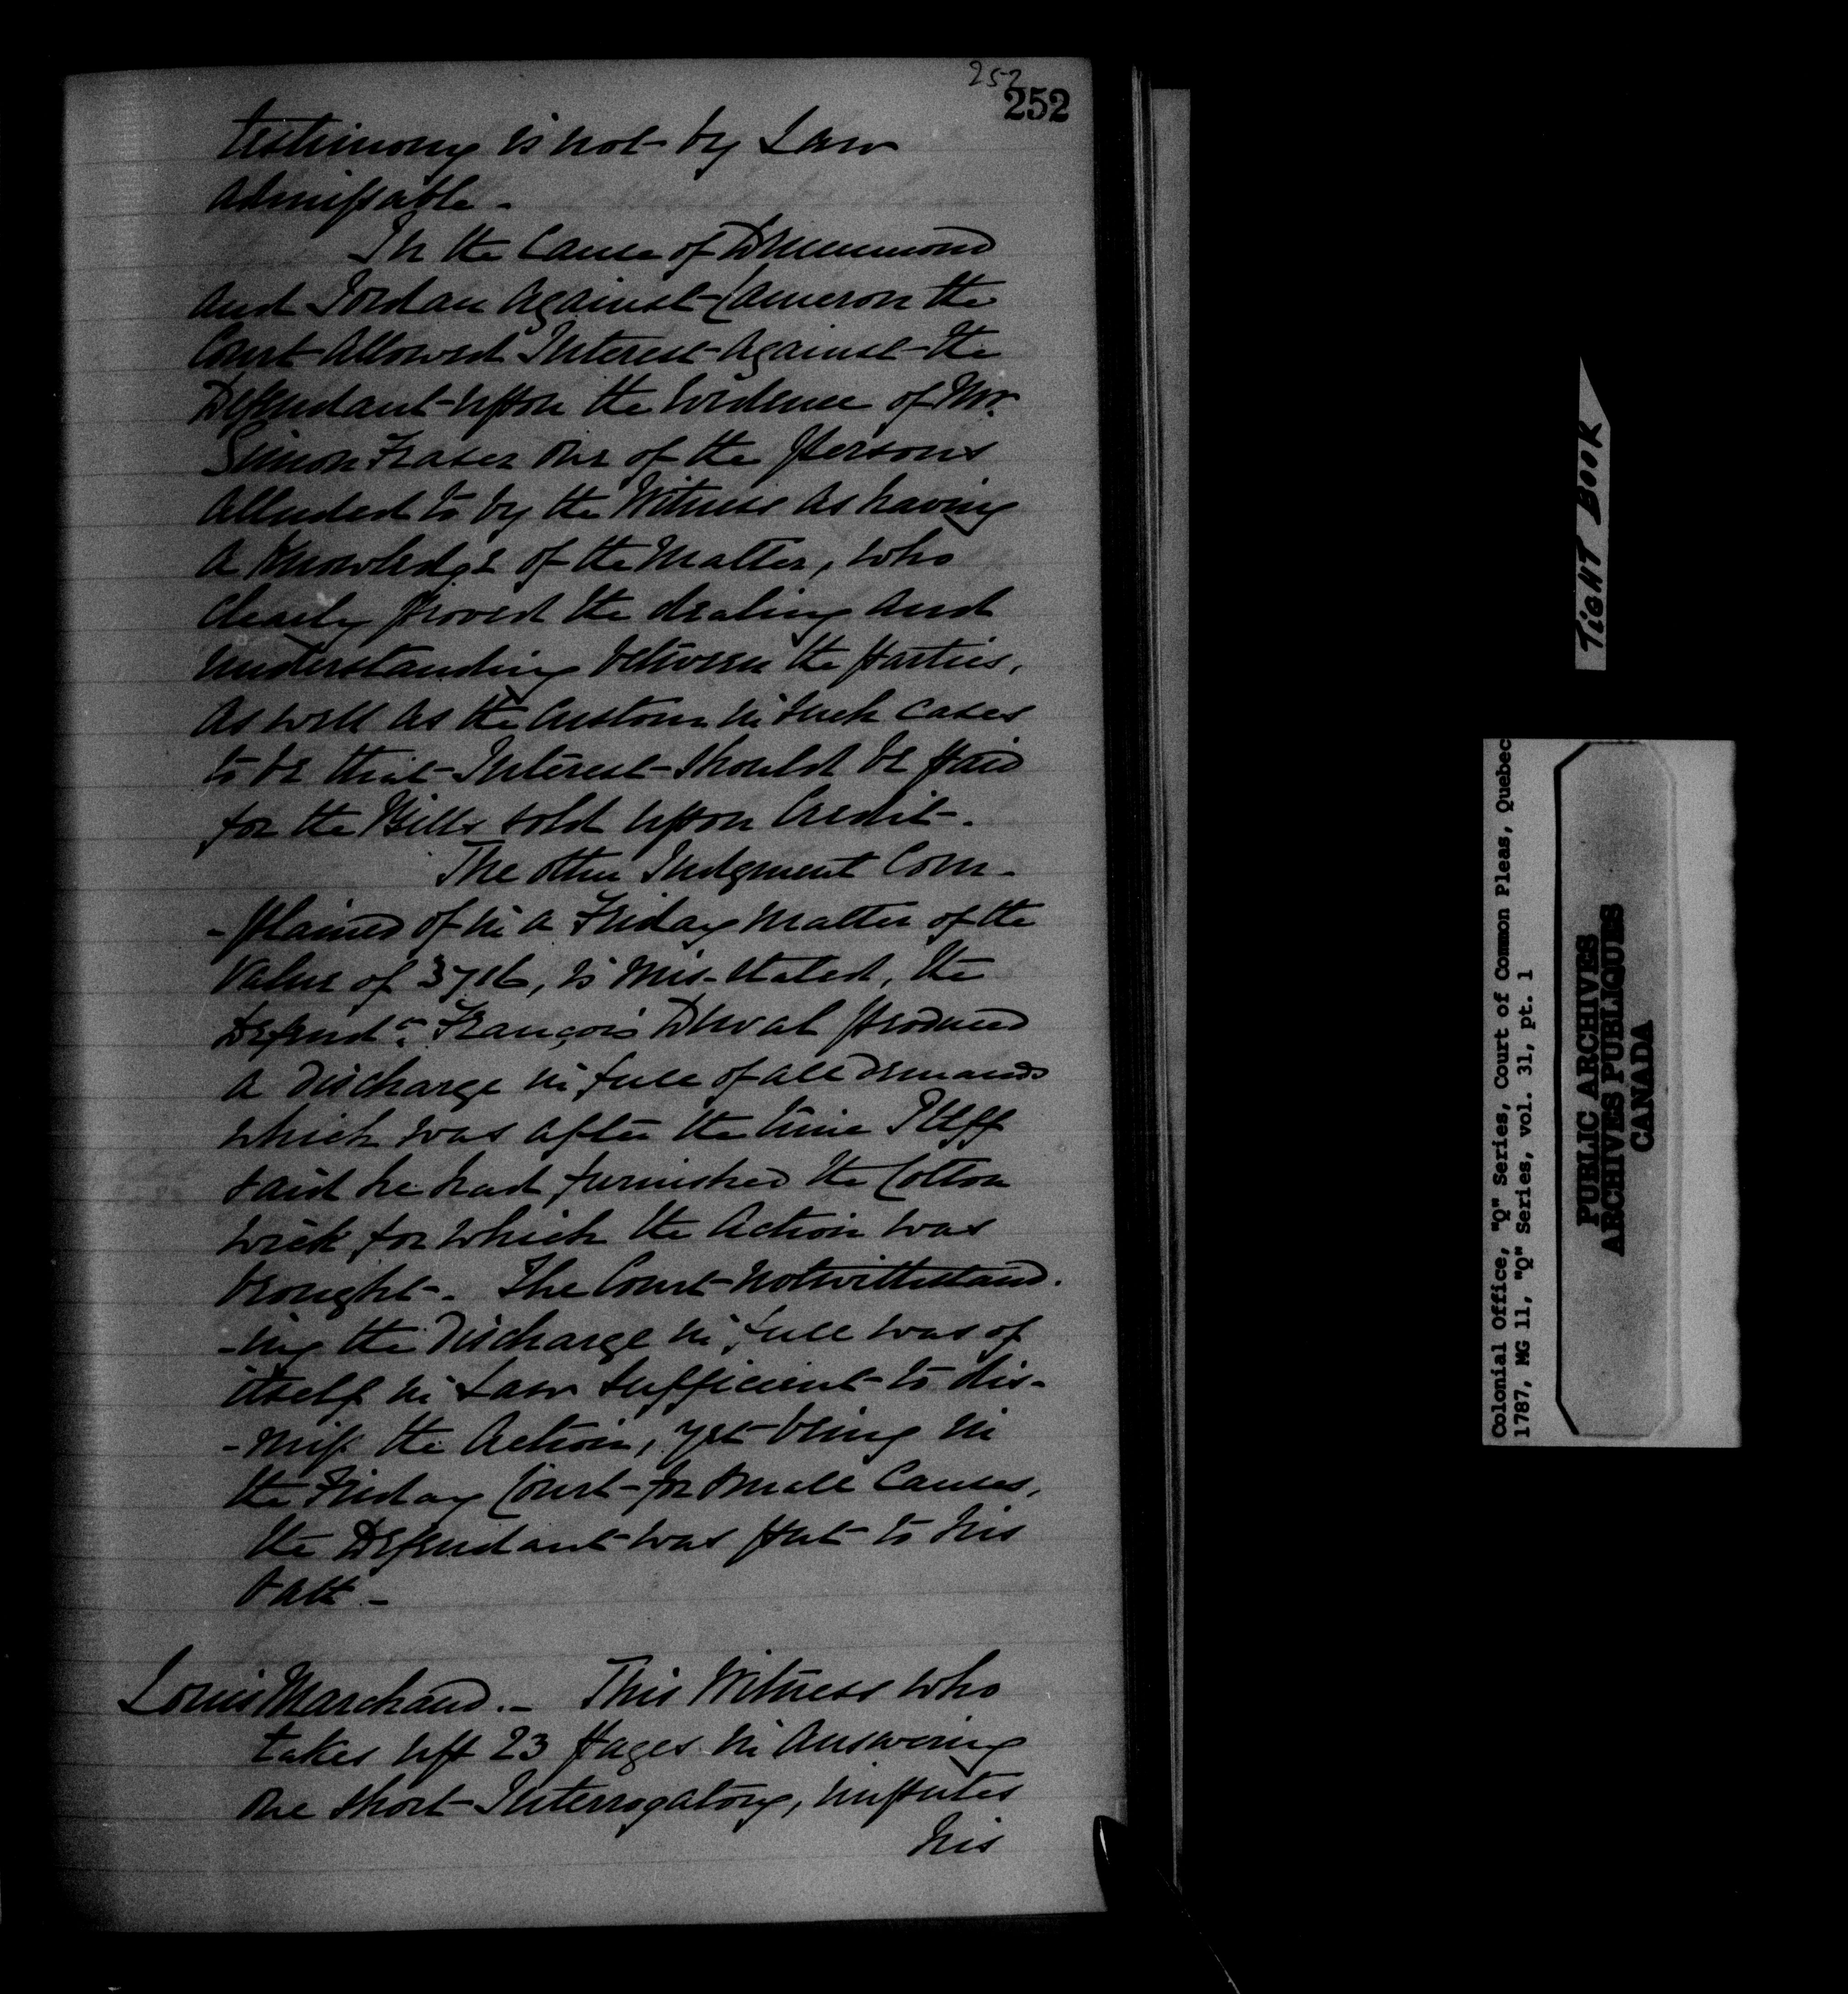 252
252
testimony is not by Law
admissable.
In the Cause of Drummond
and Jordan against Cameron the
Court allowed Interest against the
Defendant upon the Evidence of Mr.
Simon Fraser one of the persons
alluded to by the Witness as having
a knowledge of the Matter, who
clearly proved the dealing and
understanding between the parties,
as well as the Custom in such cases
to be that Interest should be paid
for the Bills sold upon Credit.
The other Judgment Com-
-plained of in a Friday matter of the
value of 37/6, is mis-stated, the
Defendt. François Duval produced
a discharge in full of all demands
which was after the time Pltff
said he had furnished the Cotton
wick for which the Action was
brought. The Court notwithstand-
-ing the Discharge in full was of
itself in Law sufficient to dis-
-miss the Action, yet being in
the Friday Court for small Causes,
the Defendant was put to his
oath -
Louis Marchand. - This Witness who
takes up 23 pages in answering
one short Interrogatory, imputes
his
TIGHT BOOK
Colonial Office, "Q" Series, Court of Common Pleas, Quebec
1787, MG 11, "Q" Series, vol. 31, pt. 1
PUBLIC ARCHIVES
ARCHIVES PUBLIQUES
CANADA